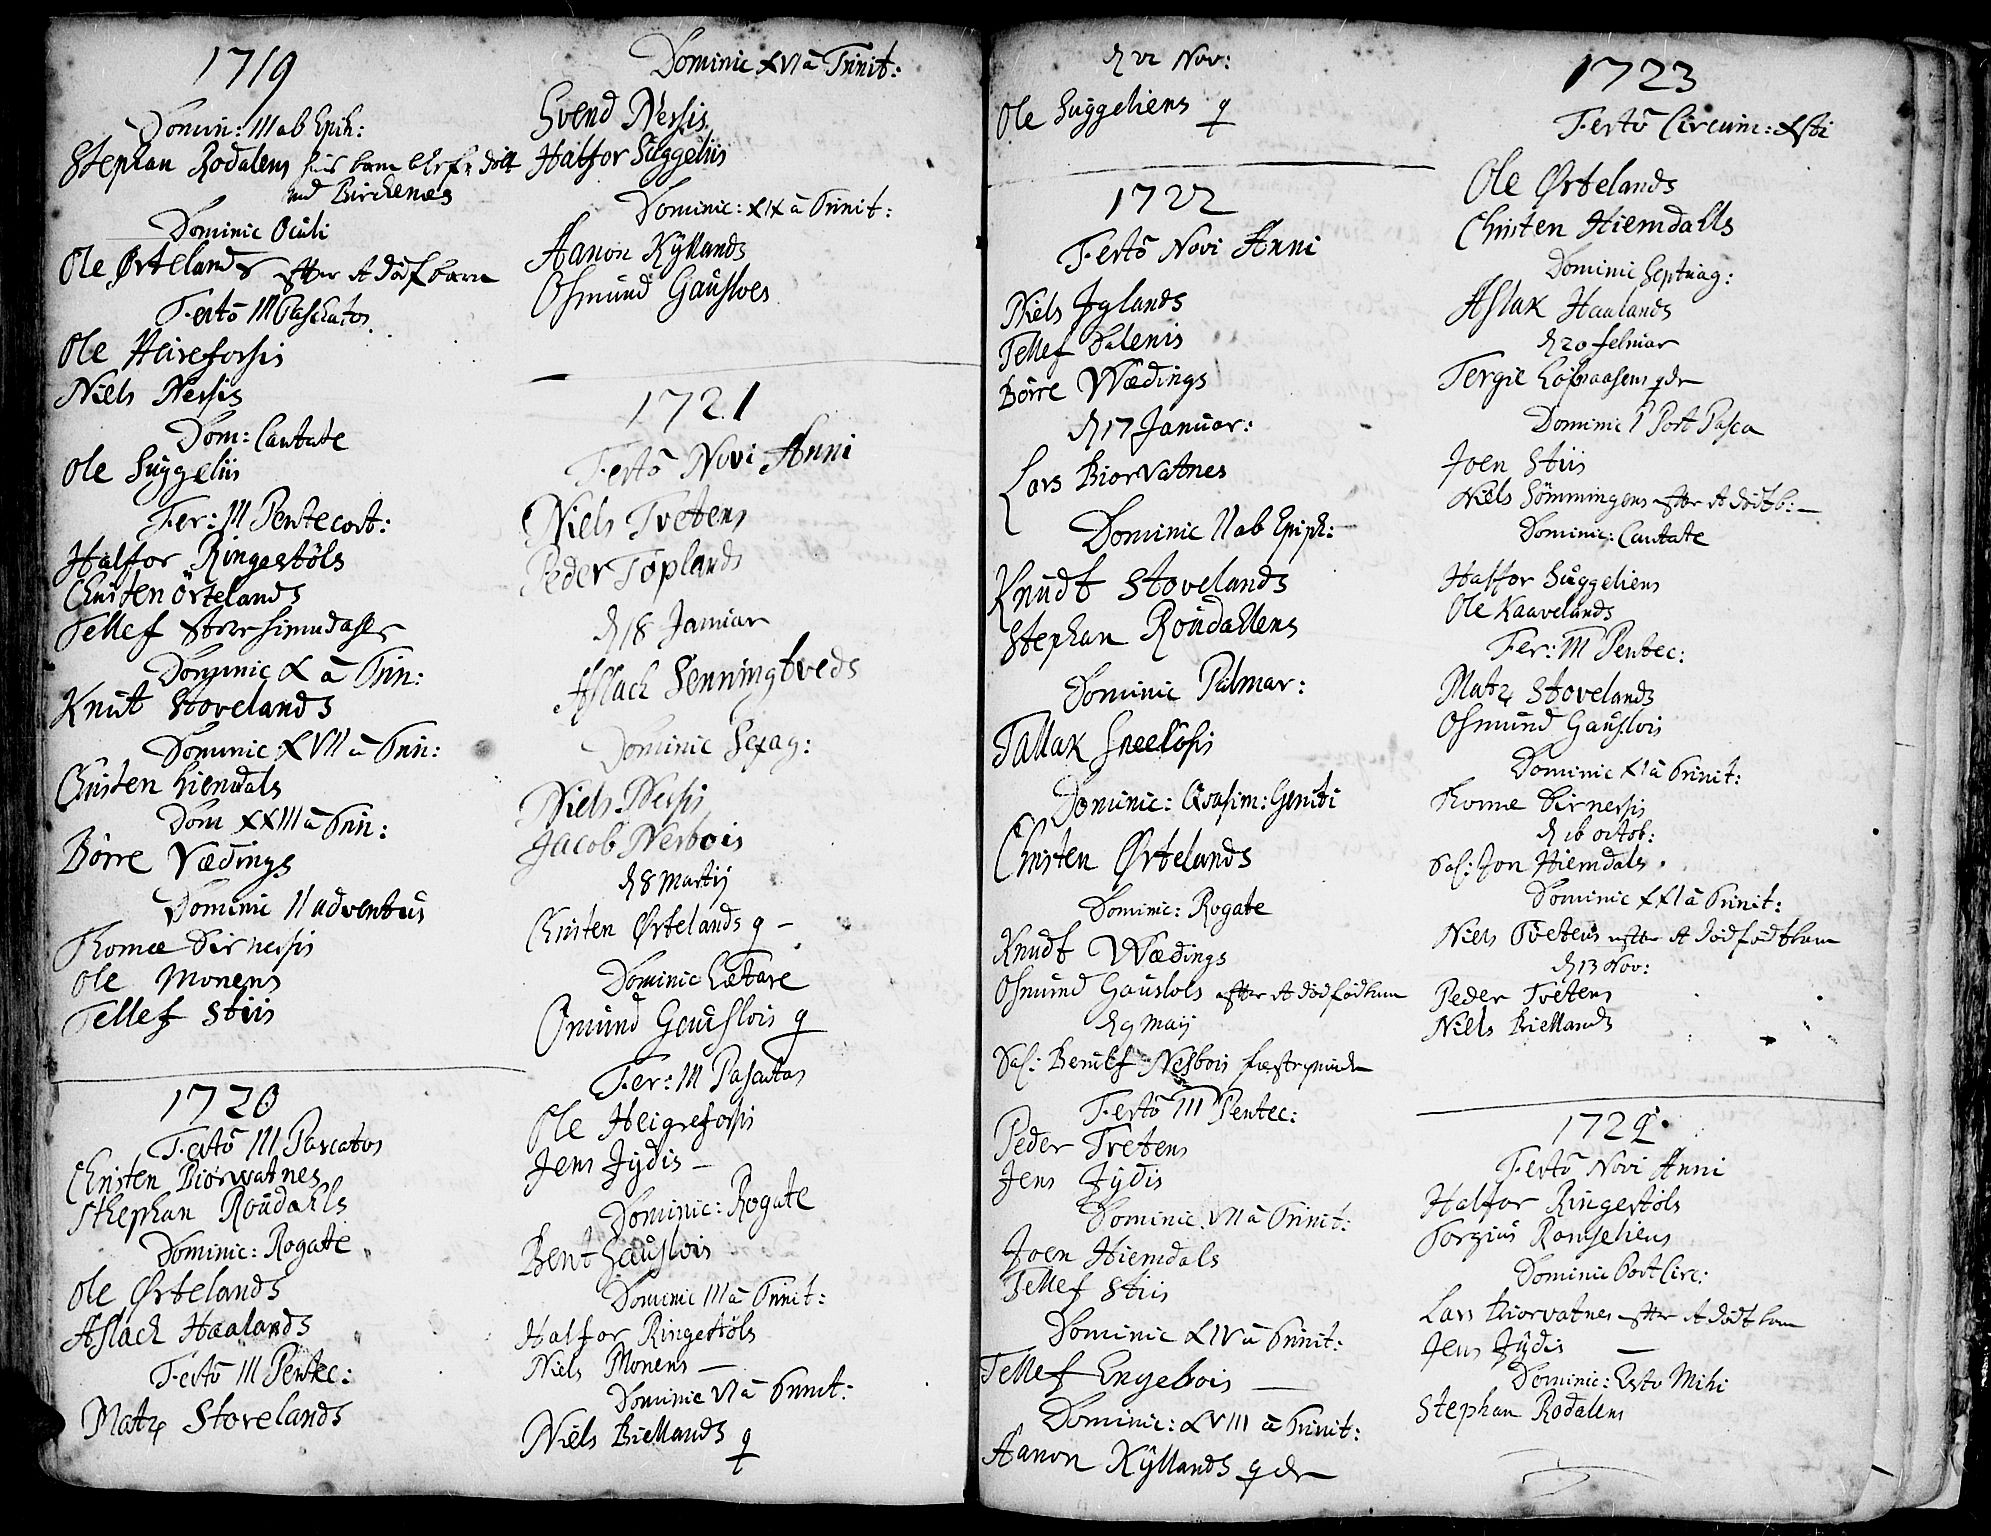 1719
Domin: III ab Epih:
Stephan Rodalens hens barn blef dött
ved Birchenes
Dominic Oculi
Ole Ørtelands efter et död barn
Festô III Paschatos
Ole Heirefossis
Niels Nessis
Dom: Cantate
Ole Suggeliis
Fer: III Pentecost:
Halfor Ringestöls
Christen örtelands
Tellef
Dominic X à Trin:
Knut Stovelands
Dominic XVII à Trin:
Christen Hiemdals
Dom XXIII à Trin:
Börre Vædings
Dominic II adventus
Thomæ Birnessis
Ole Monens
Tellef Stiis
1720
Festô III Pascatos
Christen Biorwatnes
Sthephan Roudahls
Dominic: Rogate
Ole Ørtelands
Aslach Haalands
Festô III Pentec:
Matz Stovelands
Dominic XVI à Trinit:
Svend Nessis
Halfor Suggeliis
Dominic: XIX à Trinit:
Aanon Kyllands
Osmund Gausloes
1721
Festô Novi Anni
Niels Tvetens
Peder Toplands
d 18 Januar
Aslach Senningtveds
Dominic Sexag:
Niels Nessis
Jacob Nesbois
d 8 Martij
Christen Ørtelands q –
Dominic Lætare
Osmund Gouslois q
Fer: III Pascatos
Ole Heigrefossis
Jens Jydis –
Dominic: Rogate
Bent Gauslois
Dominic III à Trinit:
Halfor Ringestöls
Niels Monens –
Dominic VI à Trinit:
Niels Biellands q
d 21 Nov:
Ole Suggeliens q
1722
Festô Novi Anni
Niels Jglands
Tellef Dalenis
Börre Wædings
d 17 Januar:
Lars Biorvatnes
Dominic II ab Epiph:
Knudt Stovelands
Stephan Roudallens
Dominic Palmar:
Tallak Sneelösis
Dominic: Qvasim: Geniti
Christen Ørtelands
Dominic: Rogate
Knudt Wædings
Osmund Gauslois efter et död föd barn
d 9 Maij
Sal: Berulf Nesbois
Festô III Pentec:
Peder Tvetens
Jens Jydis
Dominic VII à Trinit:
Joen Hiemdals
Tellef Stiis
Dominic XIV à Trinit:
Tellef Engebois –
Dominic: XVIII à Trinit:
Aanon Kyllands q
1723
Festô Circum: Xsti
Ole Ørtelands
Christen Hiemdalls
Dominic Septuag:
Aslak Haalands
d 20 februar
Tergie
Dominic I Post Pasca
Joen Stiis
Niels Sömmingens efter et död b: –
Dominic: Cantate
Halfor Suggeliens
Ole Kaavelands
Fer: III Pentec:
Matz Stovelands
Osmund Gauslois
Dominic XI à Trinit:
Thomæ Birnessis
d 16 octob:
Sal: Jon Hiemdals
Dominic XXI à Trinit:
Niels Tvetens efter et död född barn
d 13 Nov:
Peder Tvetens
Niels Biellands
1724
Festô Novi Anni
Halfor Ringestöls
Torgius Ramseliens
Dominic Post Circ:
Lars Biorvatnes efter et död barn
Jens Jydis –
Dominic: Esto Mihi
Stephan Rodalens